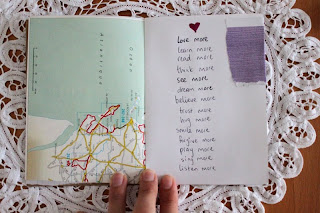 Ocean
love more
learn more
read more
think more
see more
dream more
believe more
trust more
hug more
smile more
forgive more
pray more
sing more
listen more